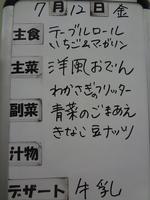 7月12日 金
主食 テーブルロール
いちご&マーガリン
主菜 洋風おでん
わかさぎのフリッター
副菜 青菜のごまあえ
きなこ豆ナッツ
汁物
デザート 牛乳